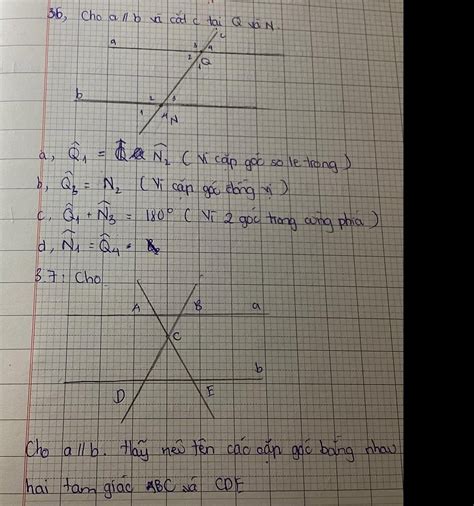 36, Cho a // b và cắt c tại Q và N.
c
a
3 4
2
1 Q
b
2 3
1 4 N
a, Q̂₁ = N̂₂ ( Vì cặp góc so le trong )
b, Q̂₃ = N₂ ( Vì cặp góc đồng vị )
c, Q̂₁ + N̂₃ = 180° ( Vì 2 góc trong cùng phía )
d, N̂₁ = Q̂₄
3.7 : Cho
A B a
C
b
D E
Cho a // b. Hãy nêu tên các cặp góc bằng nhau
hai tam giác ABC và CDE